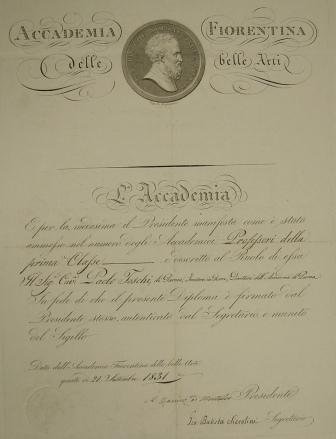 Accademia Fiorentina
delle belle Arti
L'Accademia
E per la medesima il Presidente manifesta come è stato
ammesso nel numero degli Accademici Professori della
prima Classe e descritto al Ruolo di essa
Il Sig. Cav. Paolo Toschi, di Parma, Incisore in Rame, Direttore dell' Accademia di Parma
In fede di che il presente Diploma è firmato dal
Presidente stesso, autenticato dal Segretario e munito
del Sigillo
Dato dall' Accademia Fiorentina delle belle Arti
questo dì 21 Settembre 1831
Presidente
Gio Batista Niccolini Segretario